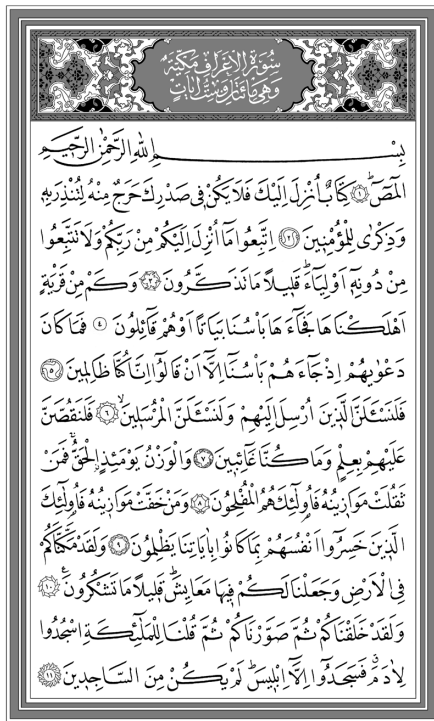 سُورَةُ الْاَعْرَافِ مَكِّيَّةٌ
وَهِيَ مِائَتَانِ وَسِتُّ اٰيَاتٍ
بِسْمِ اللّٰهِ الرَّحْمٰنِ الرَّحٖيمِ
الٓمٓصٓۜ ﴿١﴾ كِتَابٌ اُنْزِلَ اِلَيْكَ فَلَا يَكُنْ فٖى صَدْرِكَ حَرَجٌ مِنْهُ لِتُنْذِرَ بِهٖ
وَذِكْرٰى لِلْمُؤْمِنٖينَ ﴿٢﴾ اِتَّبِعُوا مَٓا اُنْزِلَ اِلَيْكُمْ مِنْ رَبِّكُمْ وَلَا تَتَّبِعُوا
مِنْ دُونِهٖٓ اَوْلِيَٓاءَۜ قَلٖيلًا مَا تَذَكَّرُونَ ﴿٣﴾ وَكَمْ مِنْ قَرْيَةٍ
اَهْلَكْنَاهَا فَجَٓاءَهَا بَأْسُنَا بَيَاتًا اَوْ هُمْ قَٓائِلُونَ ﴿٤﴾ فَمَا كَانَ
دَعْوٰيهُمْ اِذْ جَٓاءَهُمْ بَأْسُنَٓا اِلَّٓا اَنْ قَالُٓوا اِنَّا كُنَّا ظَالِمٖينَ ﴿٥﴾
فَلَنَسْـَٔلَنَّ الَّذٖينَ اُرْسِلَ اِلَيْهِمْ وَلَنَسْـَٔلَنَّ الْمُرْسَلٖينَۙ ﴿٦﴾ فَلَنَقُصَّنَّ
عَلَيْهِمْ بِعِلْمٍ وَمَا كُنَّا غَٓائِبٖينَ ﴿٧﴾ وَالْوَزْنُ يَوْمَئِذٍ الْحَقُّۚ فَمَنْ
ثَقُلَتْ مَوَازٖينُهُ فَاُو۬لٰٓئِكَ هُمُ الْمُفْلِحُونَ ﴿٨﴾ وَمَنْ خَفَّتْ مَوَازٖينُهُ فَاُو۬لٰٓئِكَ
الَّذٖينَ خَسِرُٓوا اَنْفُسَهُمْ بِمَا كَانُوا بِاٰيَاتِنَا يَظْلِمُونَ ﴿٩﴾ وَلَقَدْ مَكَّنَّاكُمْ
فِى الْاَرْضِ وَجَعَلْنَا لَكُمْ فٖيهَا مَعَايِشَۜ قَلٖيلًا مَا تَشْكُرُونَ۟ ﴿١٠﴾
وَلَقَدْ خَلَقْنَاكُمْ ثُمَّ صَوَّرْنَاكُمْ ثُمَّ قُلْنَا لِلْمَلٰٓئِكَةِ اسْجُدُوا
لِاٰدَمَۗ فَسَجَدُٓوا اِلَّٓا اِبْلٖيسَۜ لَمْ يَكُنْ مِنَ السَّاجِدٖينَ ﴿١١﴾